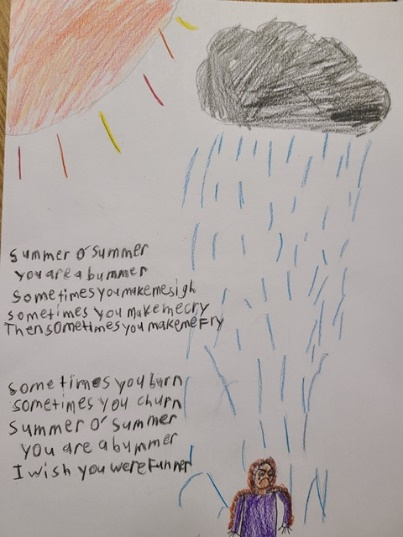 Summer O' Summer
you are a bummer
Sometimes you make me sigh
sometimes you make me cry
Then sometimes you make me Fry
sometimes you burn
sometimes you churn
Summer O' Summer
you are a bummer
I wish you were Funner